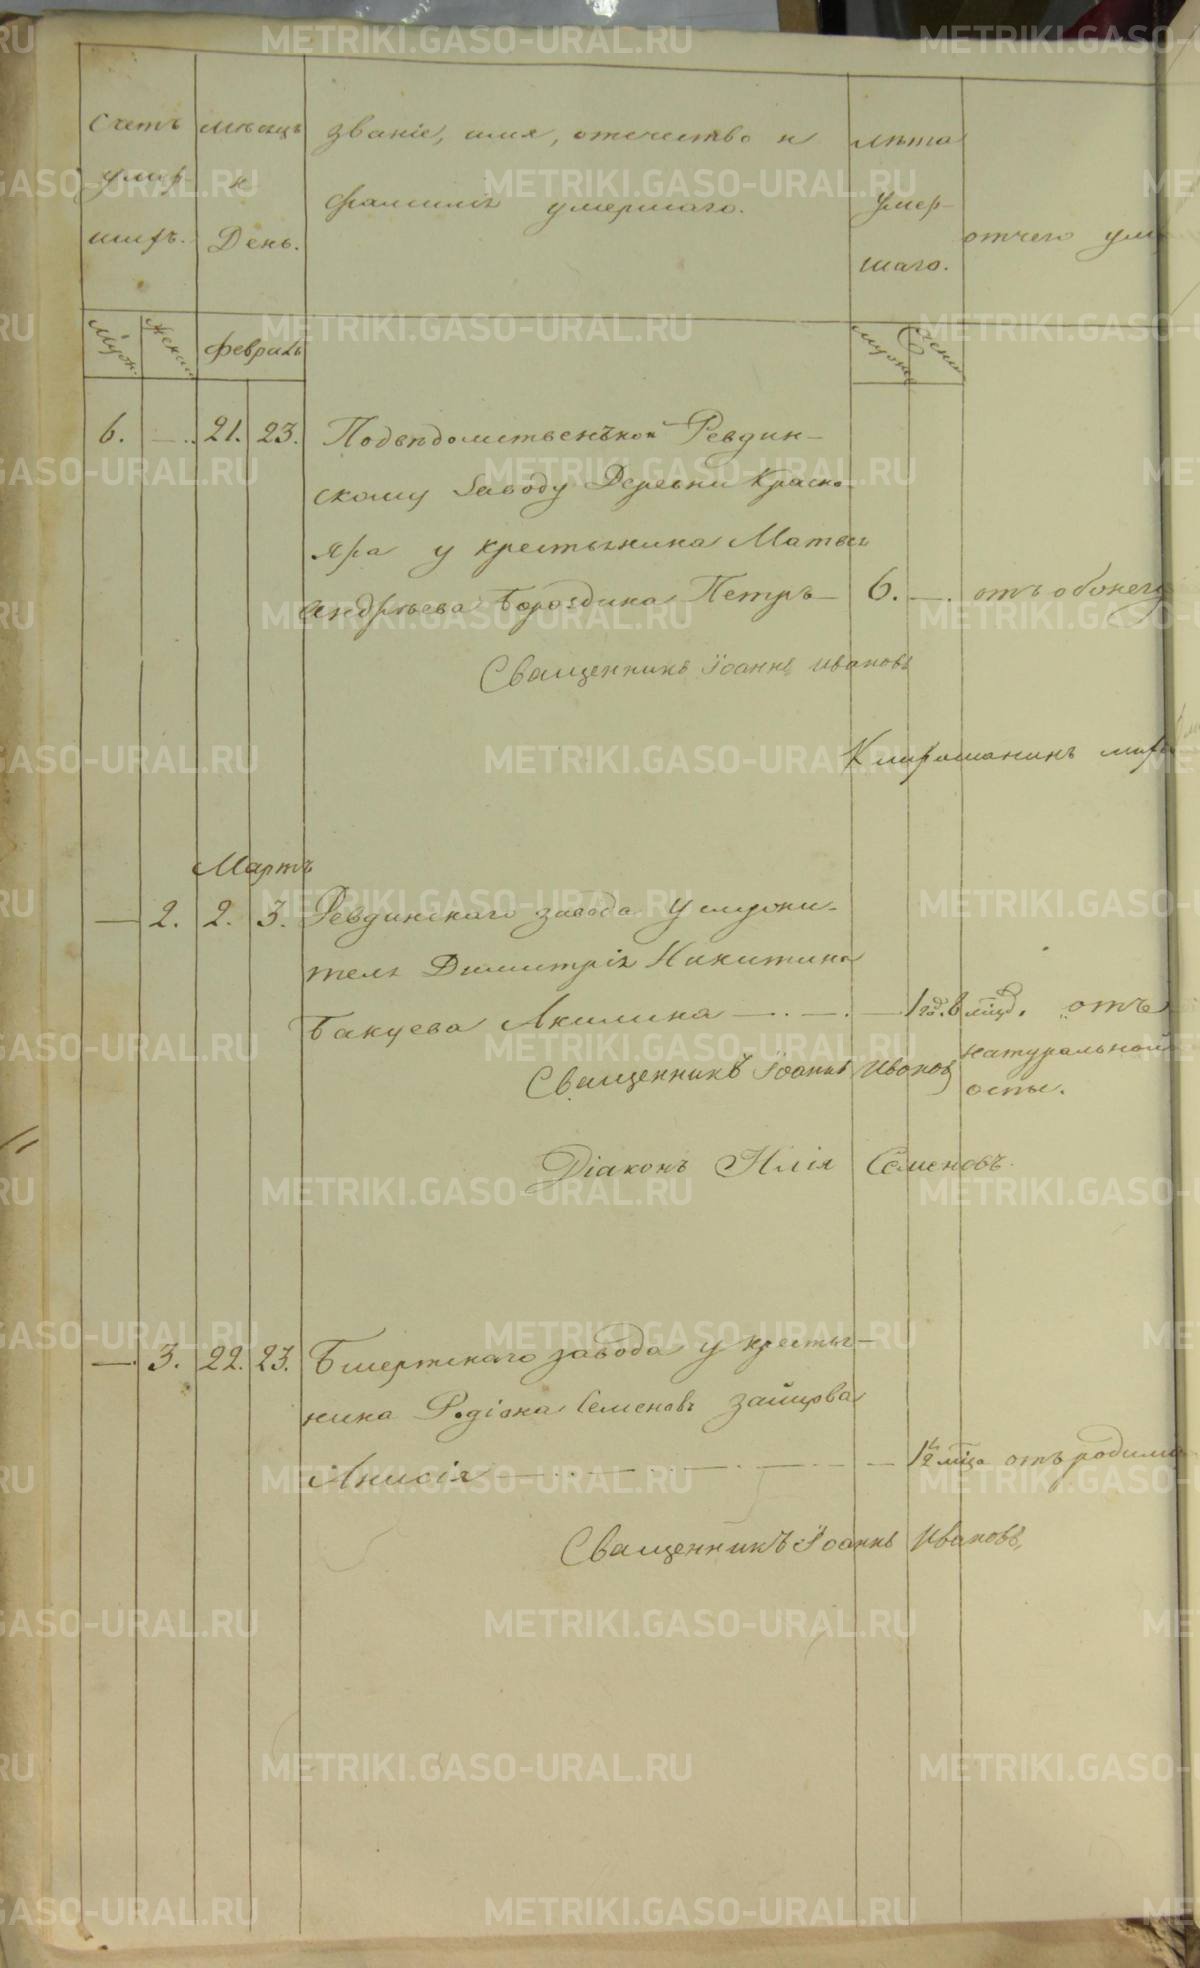 счетъ мѣсяцъ званіе, имя, отечество и лѣта
умер- и фамиліе умершаго. умер-
шихъ. День. шаго. отчего уме
Муж. Женск февраль мужс жен
6. — 21. 23. Подвѣдомственной Ревдин-
скому заводу Деревни Красно-
яра у крестьянина Матвея
Андрѣева Бороздина Петръ — 6. — отъ
Священникъ Іоаннъ Ивановъ
Мартъ
— 2. 2. 3. Ревдинскаго завода у служи-
теля Димитрія Никитина
Бакуева Акилина — 1 год. 8 мѣсяц. отъ
натуральной
Священникъ Іоаннъ Ивановъ оспы.
Діаконъ Илія Семеновъ.
— 3. 22. 23. Бисертскаго завода у крестья-
нина Родіона Семенова Зайцова
Анисія — 1/2 мѣца отъ родим
Священникъ Іоаннъ Ивановъ